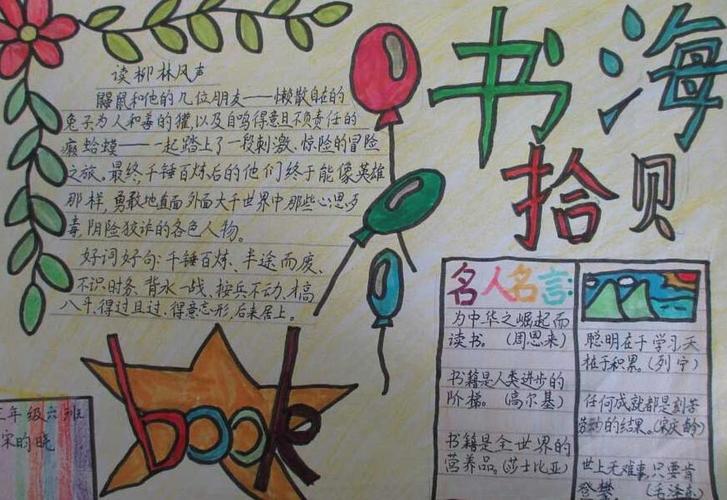 书海
拾贝
读柳林风声
鼹鼠和他的几位朋友——懒散自在的
兔子为人和蔼的獾,以及自鸣得意且不负责任的
癞蛤蟆——一起踏上了一段刺激、惊险的冒险
之旅。最终,千锤百炼后的他们终于能像英雄
那样,勇敢地直面外面大千世界中那些心思歹
毒,阴险狡诈的各色人物。
好词好句:千锤百炼、半途而废、
不识时务、背水一战、按兵不动、才高
八斗、得过且过、得意忘形、后来居上。
book
年级六班
宋昀晓
名人名言:
为中华之崛起而
读书。(周恩来)
书籍是人类进步的
阶梯。(高尔基)
书籍是全世界的
营养品。(莎士比亚)
聪明在于学习,天
在于积累。(列宁)
任何成就都是刻苦
劳动的结果。(宋庆龄)
世上无难事,只要肯
登攀。(毛泽东)